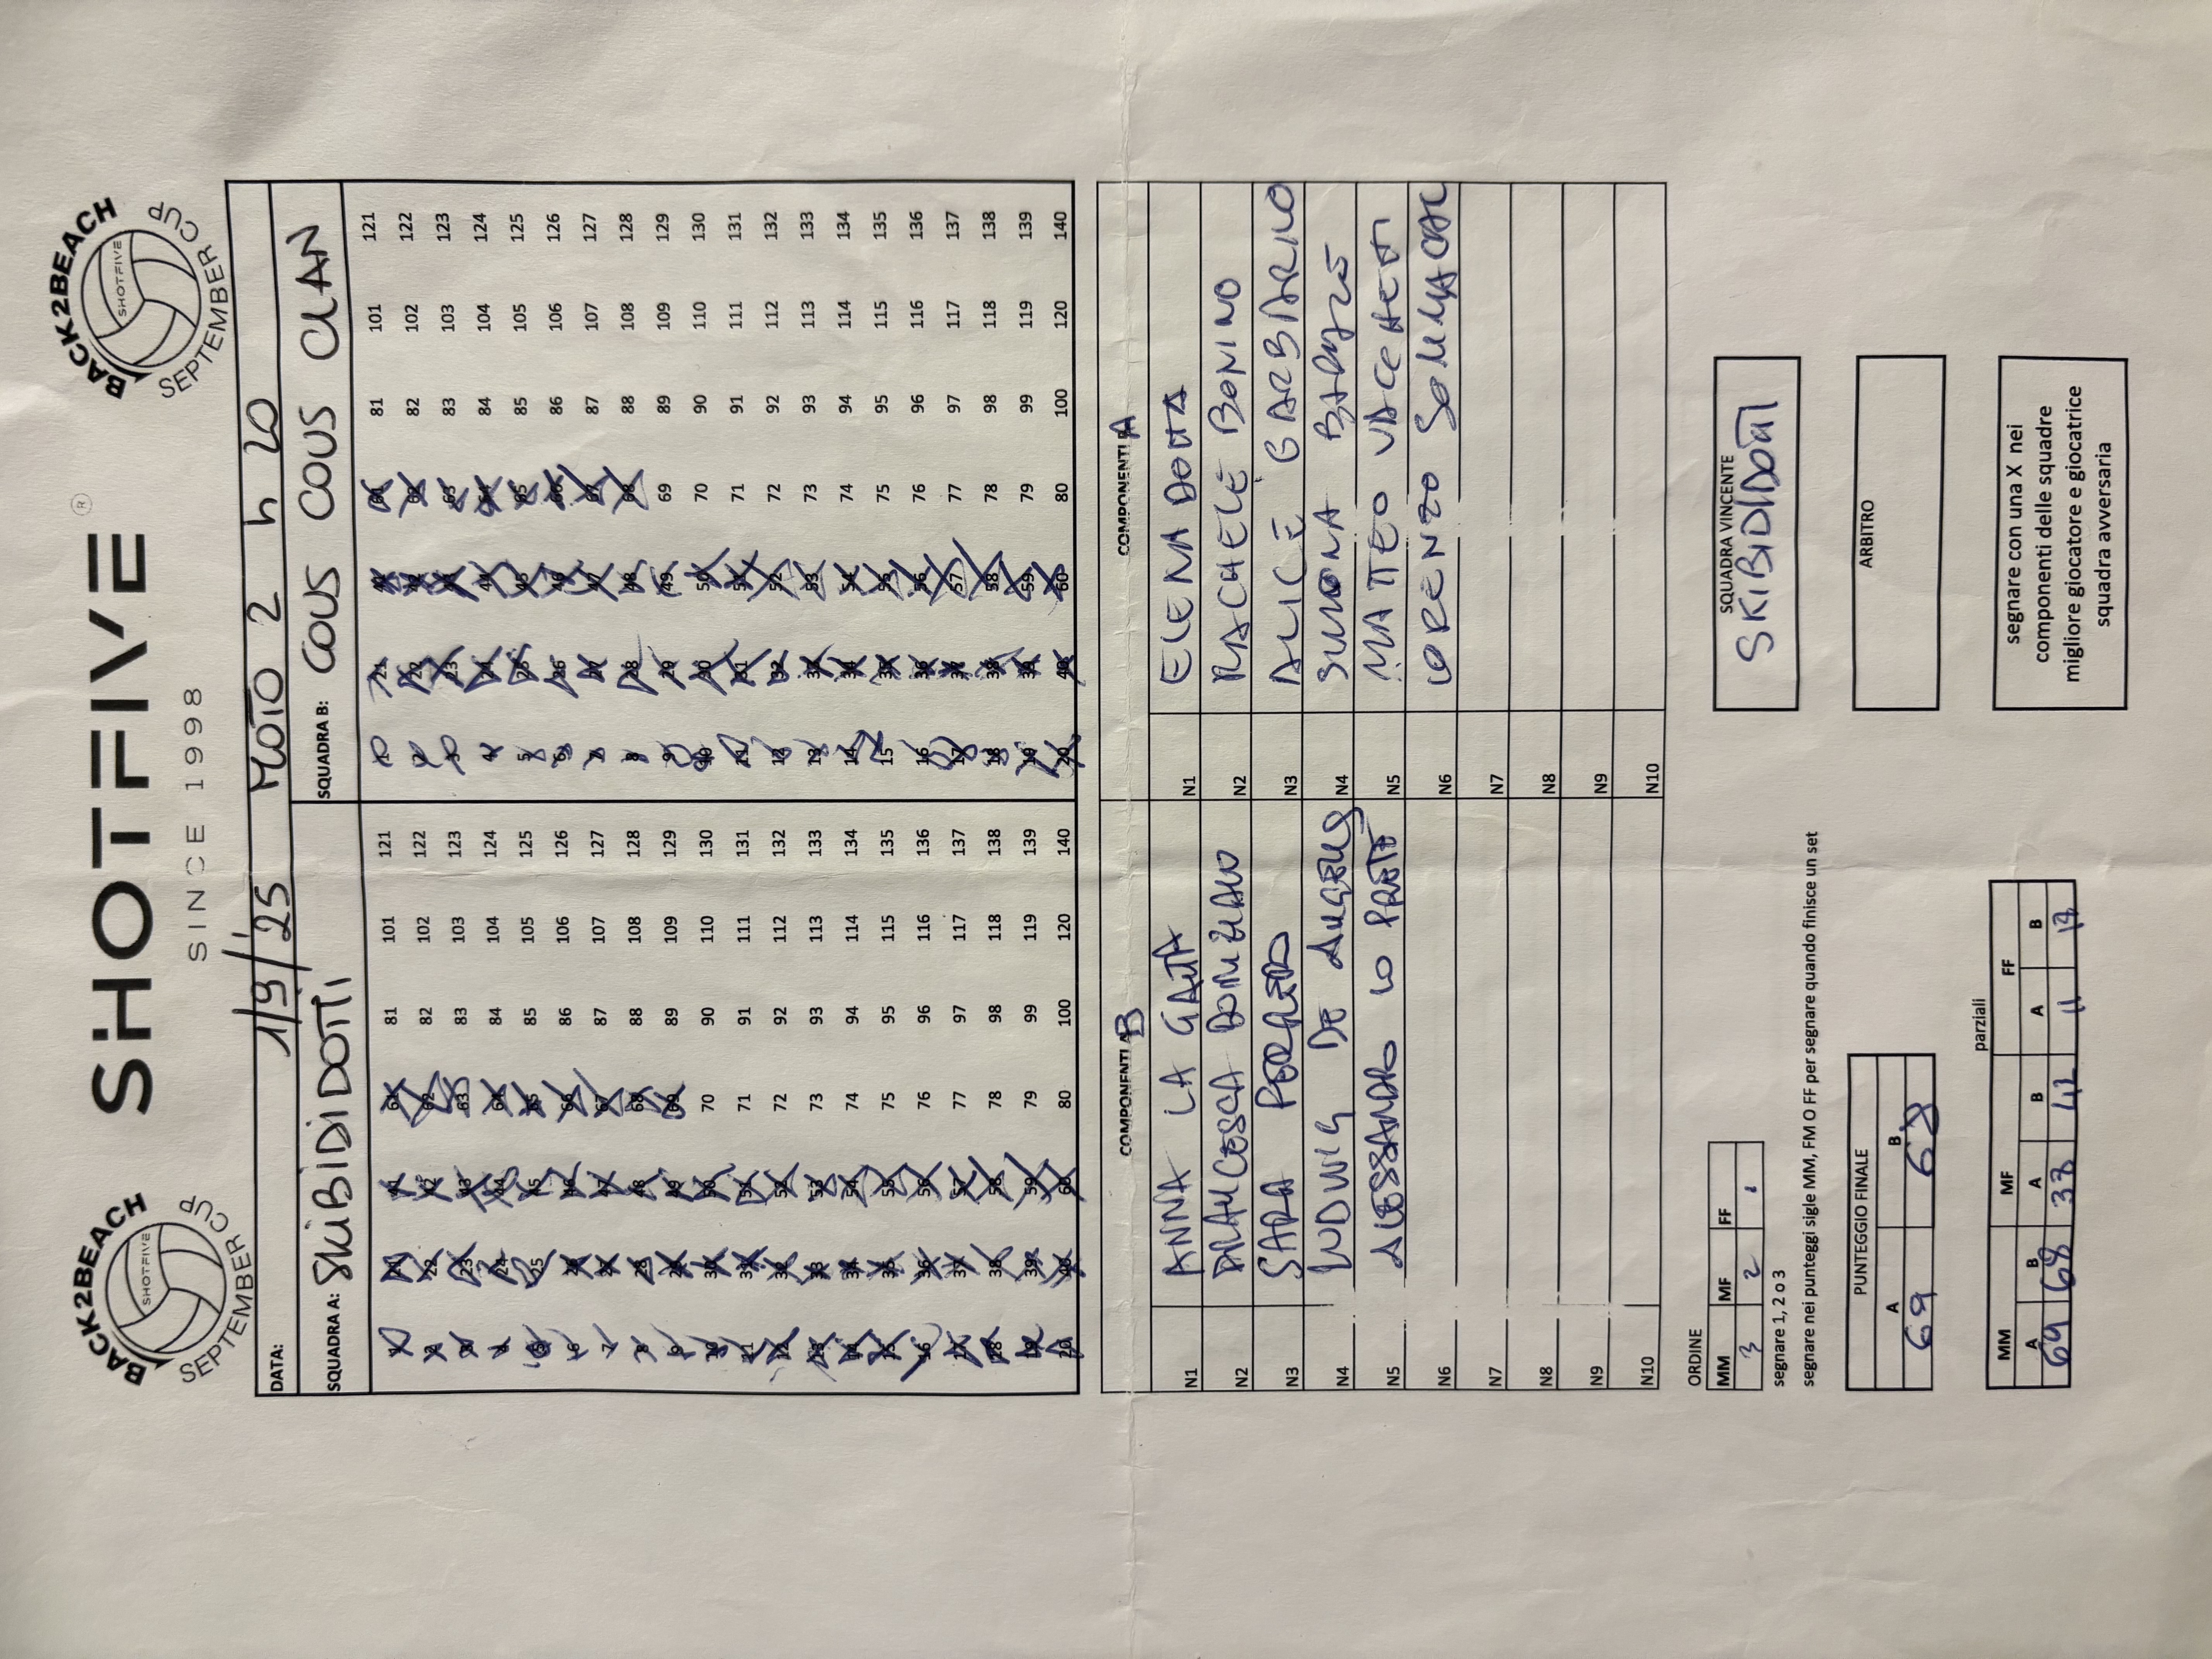 BACK2BEACH
SHOTFIVE
SEPTEMBER CUP
SHOTFIVE®
SINCE 1998
BACK2BEACH
SHOTFIVE
SEPTEMBER CUP
DATA: 1/9/25 MOTO 2 h 20
SQUADRA A: SKIBIDIDOTTI SQUADRA B: COUS COUS CLAN
1 21 41 61 81 101 121 1 21 41 61 81 101 121
2 22 42 62 82 102 122 2 22 42 62 82 102 122
3 23 43 63 83 103 123 3 23 43 63 83 103 123
4 24 44 64 84 104 124 4 24 44 64 84 104 124
5 25 45 65 85 105 125 5 25 45 65 85 105 125
6 26 46 66 86 106 126 6 26 46 66 86 106 126
7 27 47 67 87 107 127 7 27 47 67 87 107 127
8 28 48 68 88 108 128 8 28 48 68 88 108 128
9 29 49 69 89 109 129 9 29 49 69 89 109 129
10 30 50 70 90 110 130 10 30 50 70 90 110 130
11 31 51 71 91 111 131 11 31 51 71 91 111 131
12 32 52 72 92 112 132 12 32 52 72 92 112 132
13 33 53 73 93 113 133 13 33 53 73 93 113 133
14 34 54 74 94 114 134 14 34 54 74 94 114 134
15 35 55 75 95 115 135 15 35 55 75 95 115 135
16 36 56 76 96 116 136 16 36 56 76 96 116 136
17 37 57 77 97 117 137 17 37 57 77 97 117 137
18 38 58 78 98 118 138 18 38 58 78 98 118 138
19 39 59 79 99 119 139 19 39 59 79 99 119 139
20 40 60 80 100 120 140 20 40 60 80 100 120 140
COMPONENTI B COMPONENTI A
N1 ANNA LA GATTA N1 ELENA DOTTA
N2 N2 RACHELE BONINO
N3 SARA N3 ALICE GARBARINO
N4 LUDWIG DE ANGELIS N4 SIMONA
N5 ALESSANDRO LO PRETE N5 MATTEO VACCHETTI
N6 N6 LORENZO SOMMACAL
N7 N7
N8 N8
N9 N9
N10 N10
ORDINE
MM MF FF
3 2 1
segnare 1, 2 o 3
segnare nei punteggi sigle MM, FM O FF per segnare quando finisce un set
SQUADRA VINCENTE
SKIBIDIDOTTI
PUNTEGGIO FINALE
A B
69 68
ARBITRO
parziali
MM MF FF
A B A B A B
69 68 37 42 11 17
segnare con una X nei
componenti delle squadre
migliore giocatore e giocatrice
squadra avversaria